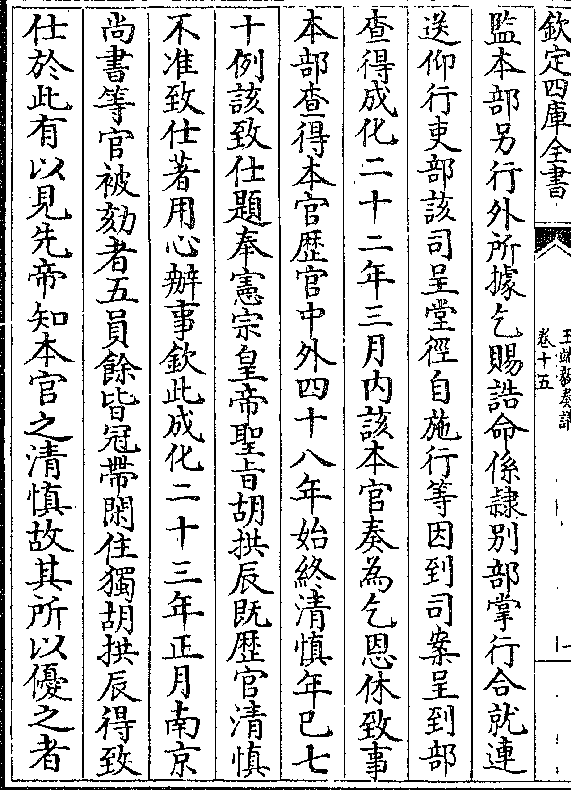 欽定四庫全書
王端毅奏議
卷十五
監本部另行外所據乞賜誥命係隷别部掌行合就連
送仰行吏部該司呈堂徑自施行等因到司案呈到部
查得成化二十二年三月内該本官奏為乞恩休致事
本部查得本官歴官中外四十八年始終清慎年已七
十例該致仕題奉憲宗皇帝聖旨胡拱辰既歴官清慎
不准致仕著用心辦事欽此成化二十三年正月南京
尚書等官被劾者五員餘皆冠帶閑住獨胡拱辰得致
仕於此有以見先帝知本官之清慎故其所以優之者